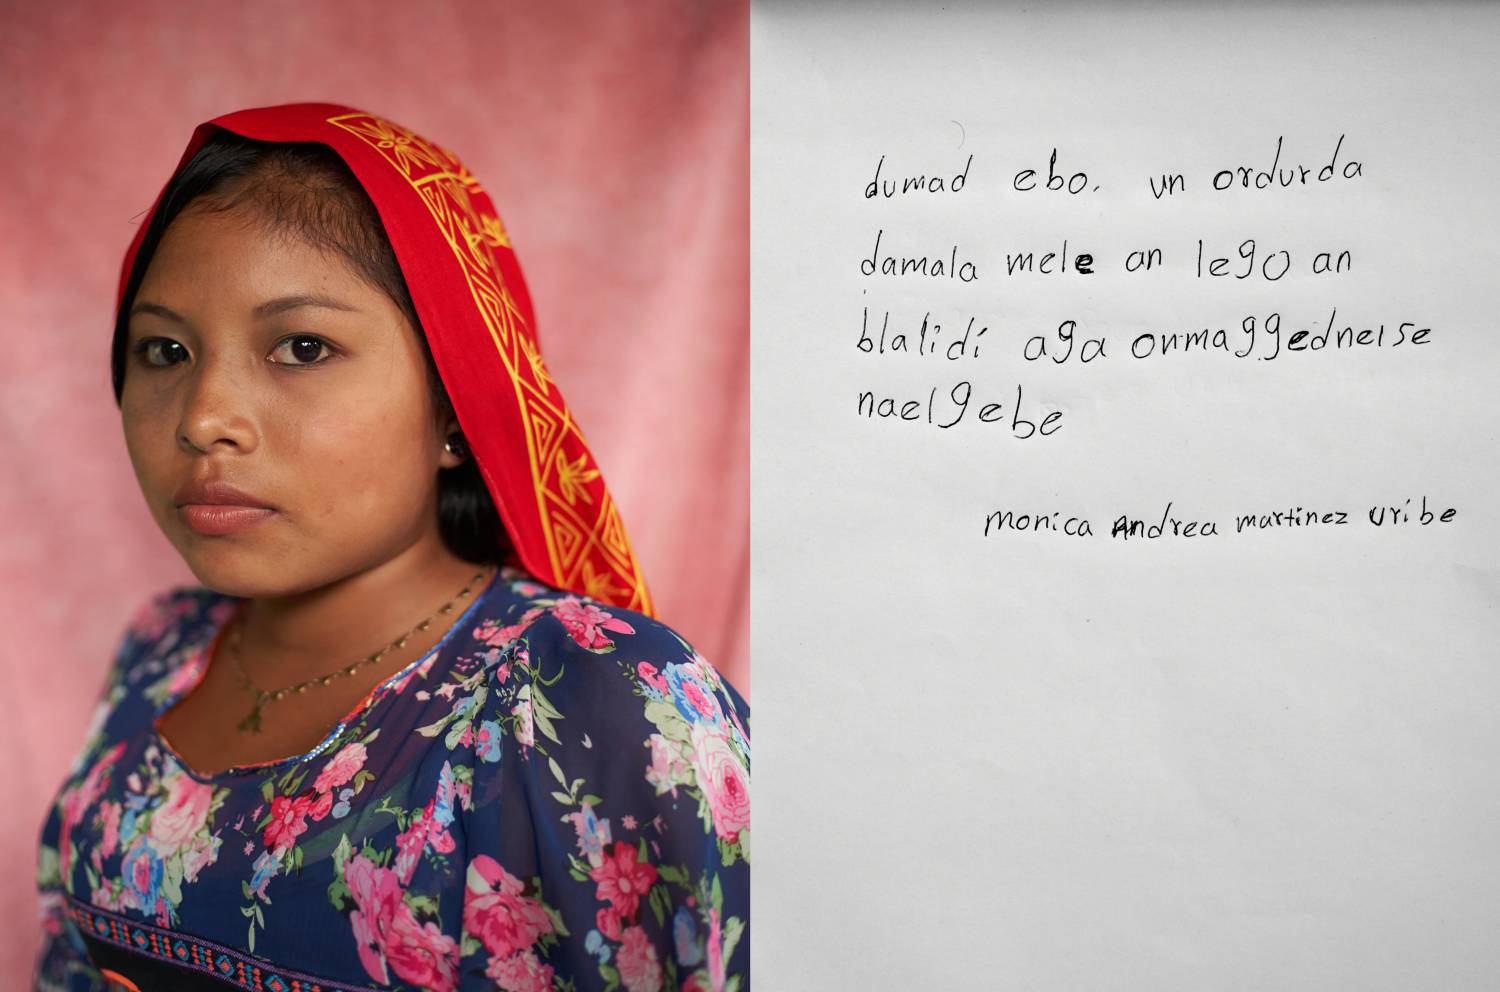 dumad ebo. un ordurda
damala mele an lego an
blalidí aga onmaggednelse
naelgebe
monica Andrea martinez uribe